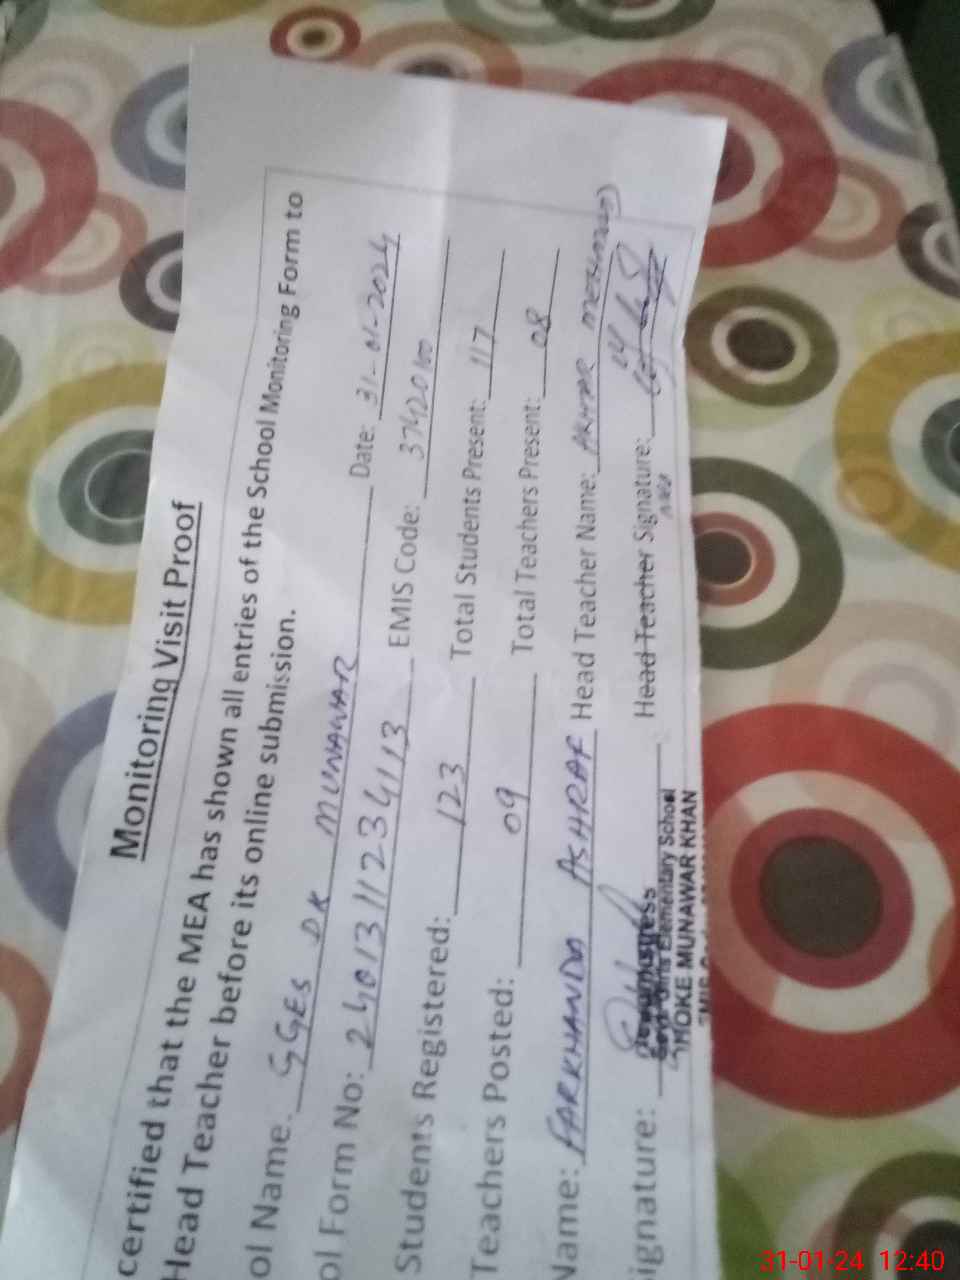 Monitoring Visit Proof
certified that the MEA has shown all entries of the School Monitoring Form to
Head Teacher before its online submission.
ol Name. GGES DK MUNAWAR Date: 31-01-2024
ol Form No: 2401311234113 EMIS Code: 37420100
Students Registered: 123 Total Students Present: 117
Teachers Posted: 09 Total Teachers Present: 08
Name: FARKHANDA ASHRAF Head Teacher Name: AKHTAR MEHMOOD
ignature: Head Teacher Signature:
Elementary School
DHOKE MUNAWAR KHAN
31-01-24 12:40